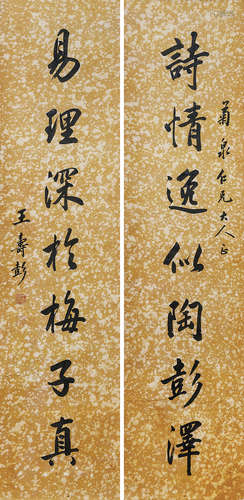 詩情逸似陶彭澤
菊泉仁兄大人正
易理深於梅子真
王壽彭